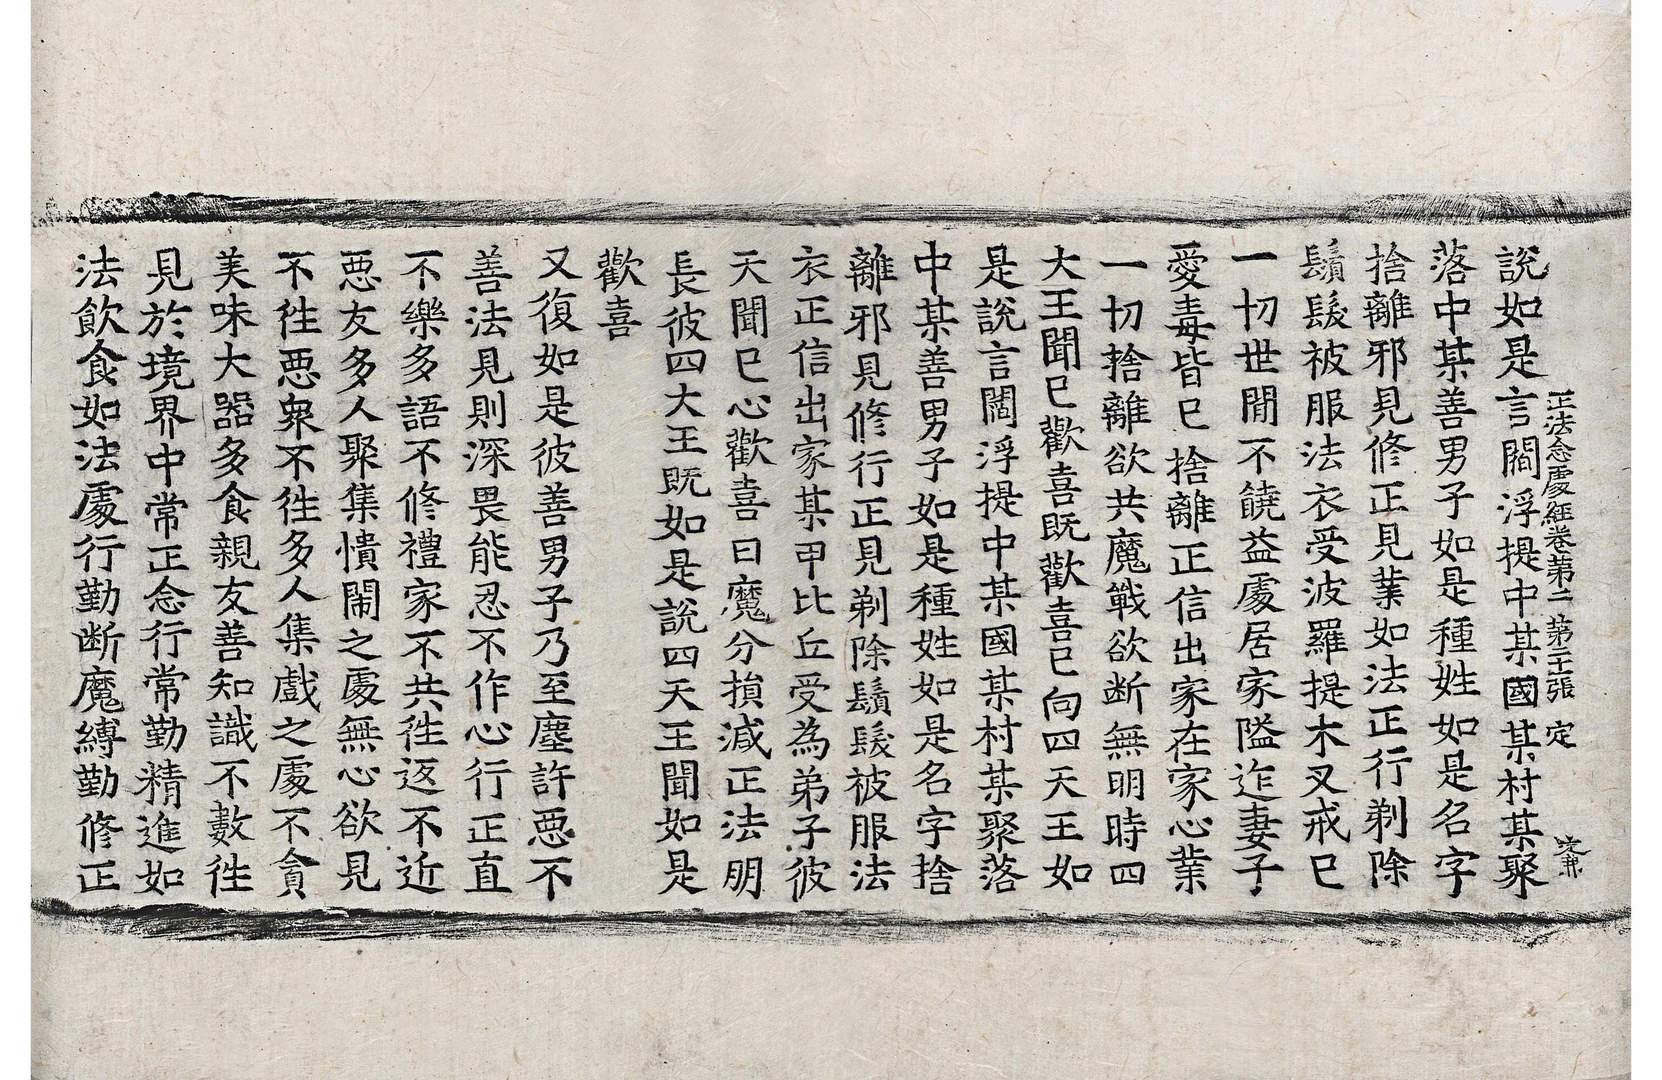 正法念處經卷第二 第二十張 定
說如是言閻浮提中某國某村某聚
落中某善男子如是種姓如是名字
捨離邪見修正見業如法正行剃除
鬚髮被服法衣受波羅提木叉戒已
一切世間不饒益處居家隘迮妻子
愛毒皆已捨離正信出家在家心業
一切捨離欲共魔戰欲断無明時四
大王聞已歡喜既歡喜已向四天王如
是說言閻浮提中某國某村某聚落
中某善男子如是種姓如是名字捨
離邪見修行正見剃除鬚髮被服法
衣正信出家某甲比丘受為弟子彼
天聞已心歡喜曰魔分損減正法朋
長彼四大王既如是說四天王聞如是
歡喜
又復如是彼善男子乃至塵許悪不
善法見則深畏能忍不作心行正直
不樂多語不修禮家不共徃返不近
悪友多人聚集憒閙之處無心欲見
不徃悪衆不徃多人集戲之處不貪
美味大器多食親友善知識不數徃
見於境界中常正念行常勤精進如
法飲食如法處行勤断魔縛勤修正